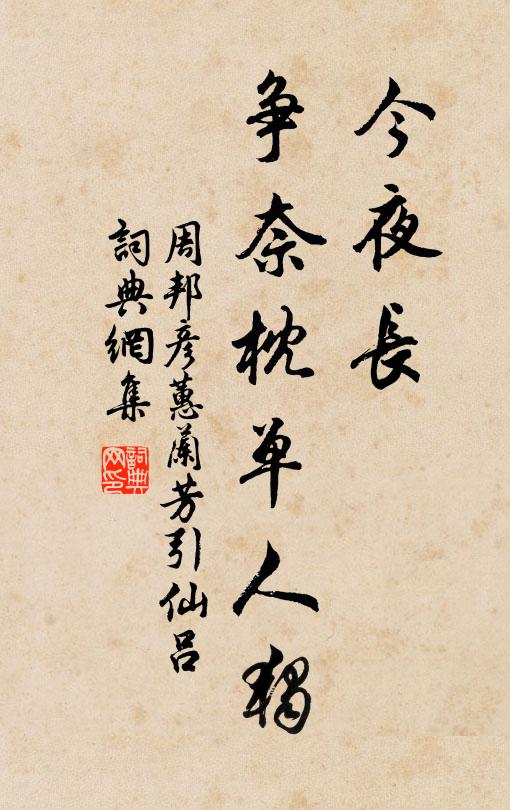 今夜長
争奈枕单人獨
周邦彦蕙蘭芳引仙吕
詞典網集
詞典网印